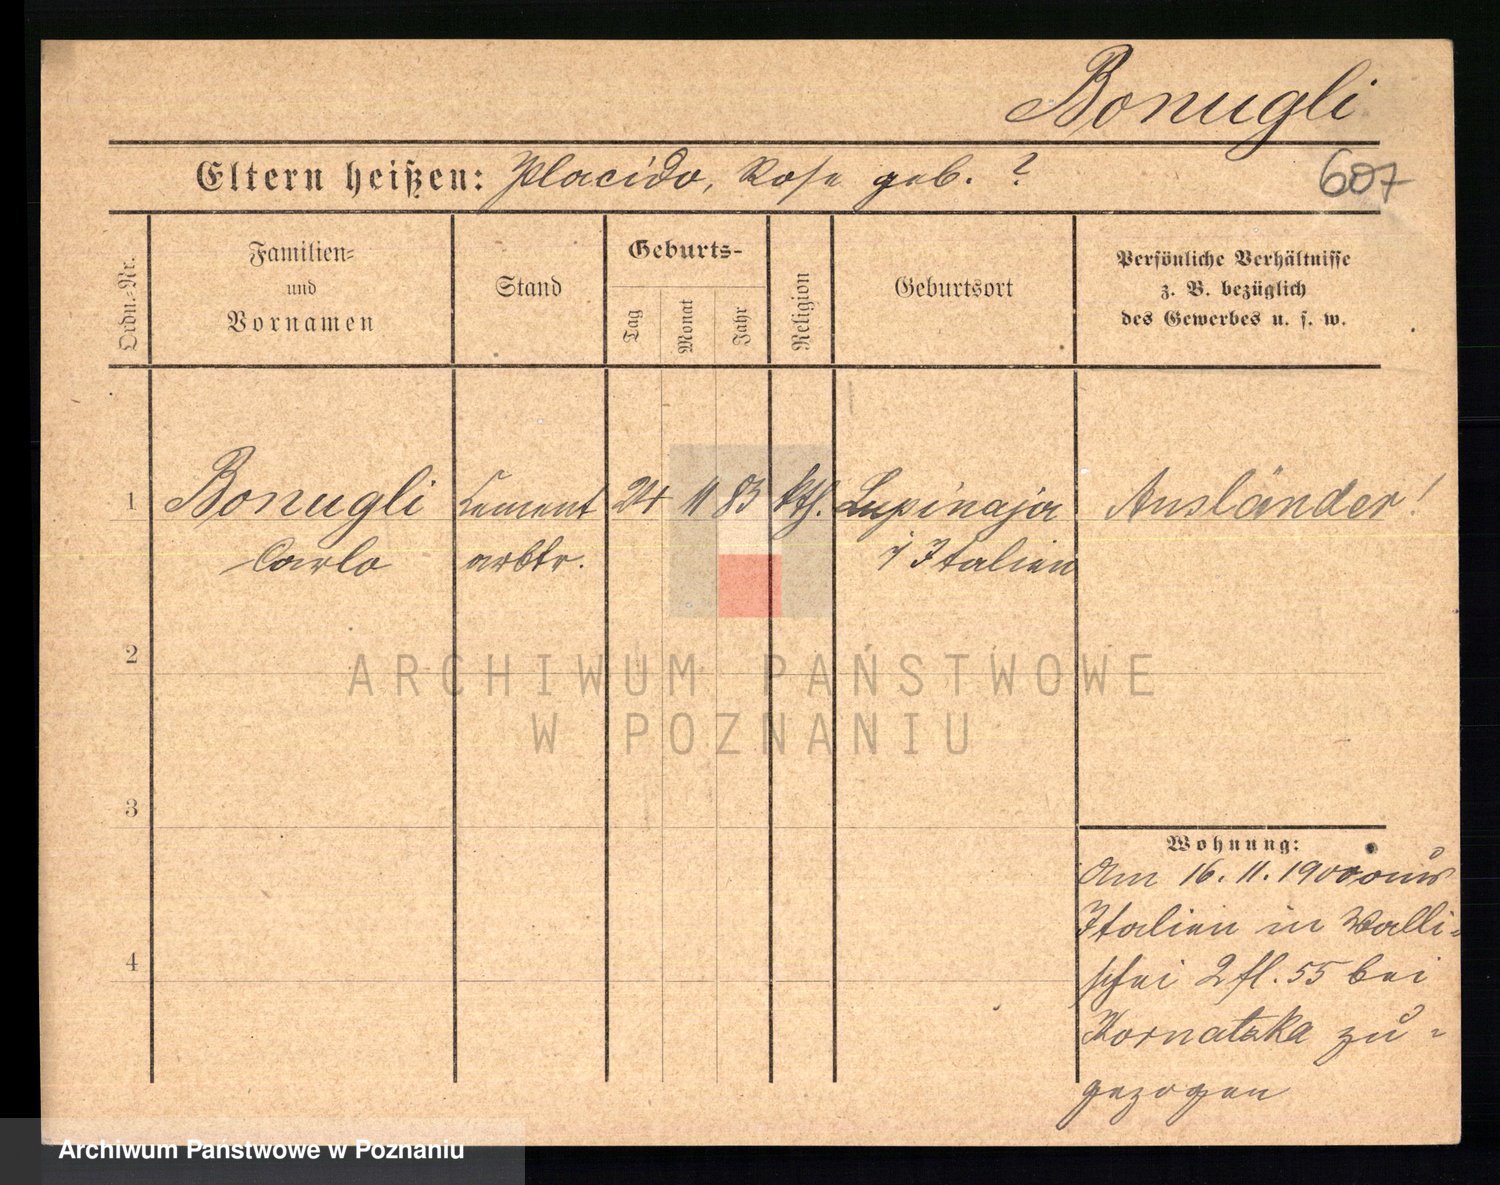 Bonugli
Eltern heißen: Placido, Rosa geb. ?
607
Ordn.-Nr.
Familien- und Vornamen
Stand
Geburts-
Tag
Monat
Jahr
Religion
Geburtsort
Persönliche Verhältnisse
z. B. bezüglich
des Gewerbes u. s. w.
1 Bonugli Cement 24 11 83 kth. Lupinaja Ausländer!
Carlo arbtr. i Italien
2
3
4
Wohnung:
Am 16. 11. 1900 aus
Italien in Walli-
schei 2 fl. 55 bei
Kornatzka zu-
gezogen
ARCHIWUM PAŃSTWOWE
W POZNANIU
Archiwum Państwowe w Poznaniu